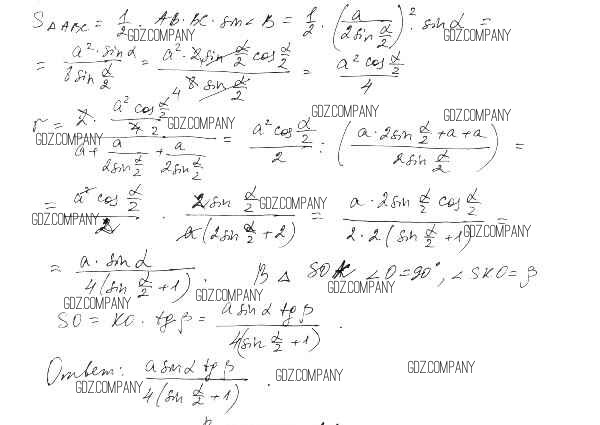 S△ABC = 1/2 · AB·BC · sin∠B = 1/2 · (a / (2sin α/2))² · sin α =
GDZ.COMPANY GDZ.COMPANY
= (a² · sin α) / (8 sin α/2) = (a² · 2sin α/2 cos α/2) / (8 sin α/2) = (a² cos α/2) / 4
GDZ.COMPANY GDZ.COMPANY GDZ.COMPANY
r = (2 · (a² cos α/2) / 4) / (a + a / (2sin α/2) + a / (2sin α/2)) = (a² cos α/2) / 2 : ((a · 2sin α/2 + a + a) / (2sin α/2)) =
GDZ.COMPANY
= (a² cos α/2) / 2 · (2sin α/2) / (a(2sin α/2 + 2)) = (a · 2sin α/2 cos α/2) / (2 · 2(sin α/2 + 1)) =
GDZ.COMPANY GDZ.COMPANY GDZ.COMPANY
= (a · sin α) / (4(sin α/2 + 1)). В △ SOK ∠O = 90°, ∠SKO = β
GDZ.COMPANY GDZ.COMPANY GDZ.COMPANY
SO = KO · tg β = (a sin α tg β) / (4(sin α/2 + 1)).
Ответ: (a sin α tg β) / (4(sin α/2 + 1)).
GDZ.COMPANY GDZ.COMPANY GDZ.COMPANY